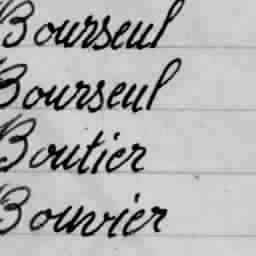 Bourseul
Bourseul
Boutier
Bouvier